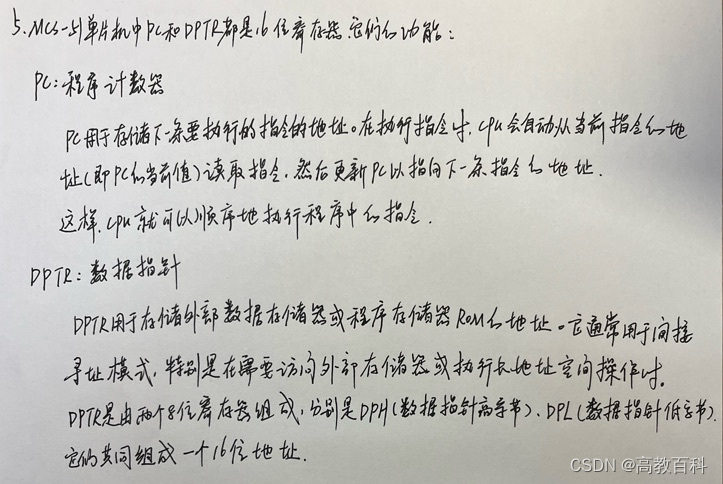 5.MCS-51单片机中PC和DPTR都是16位寄存器,它们的功能:
PC:程序计数器
PC用于存储下一条要执行的指令的地址。在执行指令时,cpu会自动从当前指令的地
址(即PC的当前值)读取指令,然后更新PC以指向下一条指令的地址.
这样,cpu就可以顺序地执行程序中的指令.
DPTR:数据指针
DPTR用于存储外部数据存储器或程序存储器ROM的地址。它通常用于间接
寻址模式,特别是在需要访问外部存储器或执行长地址空间操作时。
DPTR是由两个8位寄存器组成,分别是DPH(数据指针高字节)、DPL(数据指针低字节).
它们共同组成一个16位地址.
CSDN @高教百科